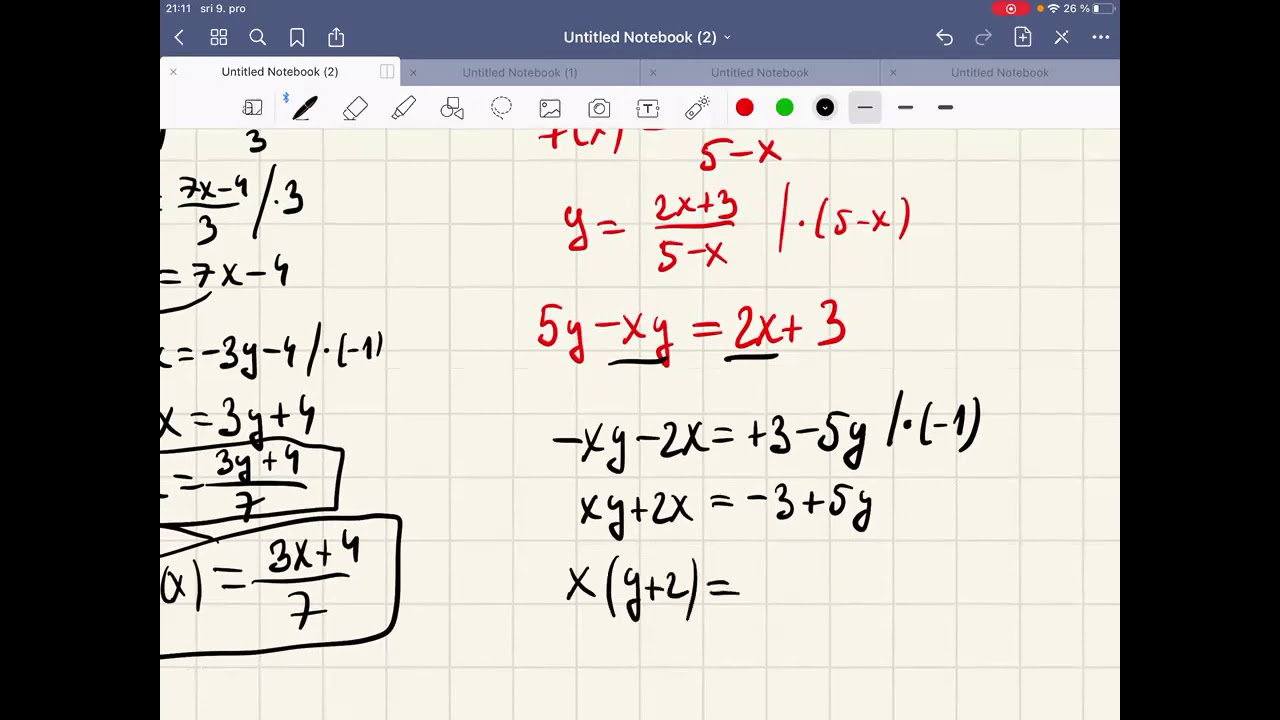 21:11 sri 9. pro 26 %
Untitled Notebook (2)
Untitled Notebook (2) Untitled Notebook (1) Untitled Notebook Untitled Notebook
3
7x-4/3 /·3
= 7x-4
x = -3y-4 /·(-1)
x = 3y+4
= 3y+4/7
(x) = 3x+4/7
f(x) = 5-x
y = 2x+3/5-x /·(5-x)
5y-xy = 2x+3
-xy-2x = +3-5y /·(-1)
xy+2x = -3+5y
x(y+2) =